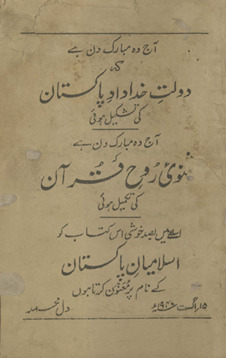 آج وہ مبارک دن ہے
کہ
دولتِ خداداد پاکستان
کی تشکیل ہوئی
آج وہ مبارک دن ہے
کہ
مثنوی رُوحِ قرآن
کی تکمیل ہوئی
اسلئے میں بصد خوشی اس کتاب کو
اسلامیانِ پاکستان
کے نام پر معنون کرتا ہوں
۱۵ اگست ۱۹۴۷ء
دل